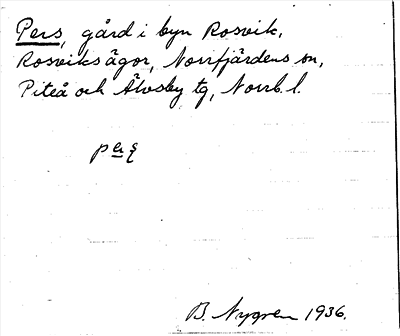 Pers, gård i byn Rosvik,
Rosviks ägor, Norrfjärdens sn,
Piteå och Älvsby tg, Norrb. l.
B. Nygren 1936.